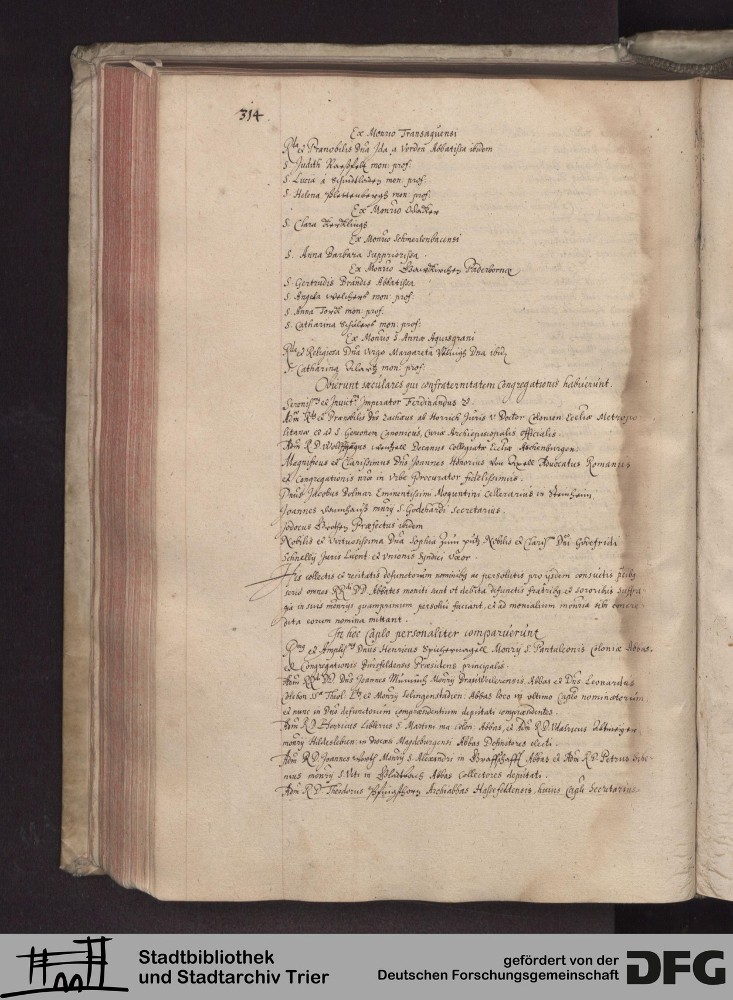 314
Ex Monrio Transaquensi
Rda et Pranobilis Dna Ida a Verden Abbatissa ibidem
S. Judith mon: prof:
S. Lucia a mon: prof:
S. Helena Plettenbergs mon: prof:
Ex Monrio
S. Clara
Ex Monrio Schmerlenbacensi
S. Anna Barbara Suppriorissa
Ex Monrio Paderbornae
S. Gertrudis Brandis Abbatissa
S. Angela Welchers mon: prof:
S. Anna mon: prof:
S. Catharina Schülers mon: prof:
Ex Monrio S. Annae Aquisgrani
Rda et Religiosa Dna Virgo Margareta Dna ibid:
S. Catharina mon: prof:
Obierunt saeculares qui confraternitatem Congregationis habuerunt.
Sereniss: et Invict: Imperator Ferdinandus 3.
Adm Rds et Pranobilis Dns Zachaeus ab Horrich Juris V. Doctor Colonien: Eccliae Metropo
litanae et ad S. Gereonem Canonicus, Curiae Archiepiscopalis officialis.
Adm R.D. Wolffgangus Decanus Collegiatae Eccliae Aschenburgen.
Magnificus et Clarissimus Dns Joannes Honorius Von Advocatus Romanus
et Congregationis nrae in Urbe Procurator fidelissimus.
Dnus Jacobus Dolmar Eminentissimi Moguntini Cellerarius in Steinheim
Joannes monry S. Godehardi Secretarius.
Jodocus Praefectus ibidem
Nobilis et Virtuosissima Dna Sophia Zum pütz Nobilis et Clariss: Dni Godefridi
Schnelly Juris Licent et Unionis Syndici Uxor.
His collectis et recitatis defunctorum nominibus ac persolutis pro ijsdem consuetis
omnes RRdi DD. Abbates moniti sunt ut debita defunctis fratribus et sororibus suffra
gia in suis monrijs quamprimum persolvi faciant, et ad monialium monria sibi concre
dita eorum nomina mittant.
In hoc Caplo personaliter comparuerunt
Rmus et Ampliss: Dnus Henricus Spichernagell Monry S. Pantaleonis Coloniae Abbas,
et Congregationis Bursfeldensis Praesidens principalis.
Adm RRdi DD. Dns Joannes Münnich Monry Brauwilerensis Abbas et Dns Leonardus
Colchon SS. Theol: et Monry Selingenstadien: Abbas loco in ultimo Caplo nominatorum
et nunc in Dno defunctorum compraesidentium deputati compraesidentes.
Adm R.D. Henricus Liblerius S. Martini ma: Colon: Abbas, et Adm R.D. Udalricus
monry Hildesleben: in dioecesi Magdeburgensi Abbas Definitores electi.
Adm R.D. Joannes Monry S. Alexandri in Graffschafft Abbas et Adm R.D. Petrus
nius monry S. Viti in Gladbach Abbas Collectores deputati.
Adm R.D. Theodorus Archiabbas huius Capli Secretarius
Stadtbibliothek
und Stadtarchiv Trier
gefördert von der
Deutschen Forschungsgemeinschaft
DFG